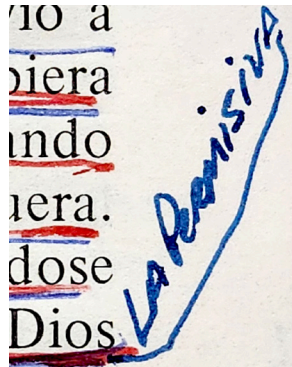 vio a
piera
ando
uera.
dose
Dios
La Permisiva